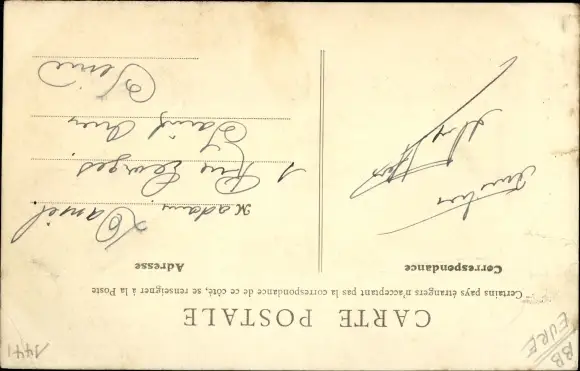 CARTE POSTALE
Certains pays étrangers n'acceptant pas la correspondance de ce côté, se renseigner à la Poste
Correspondance
Adresse
Madame
Daniel
1 Rue Georges
Saint Ouen
Seine
BB
EURE
1441